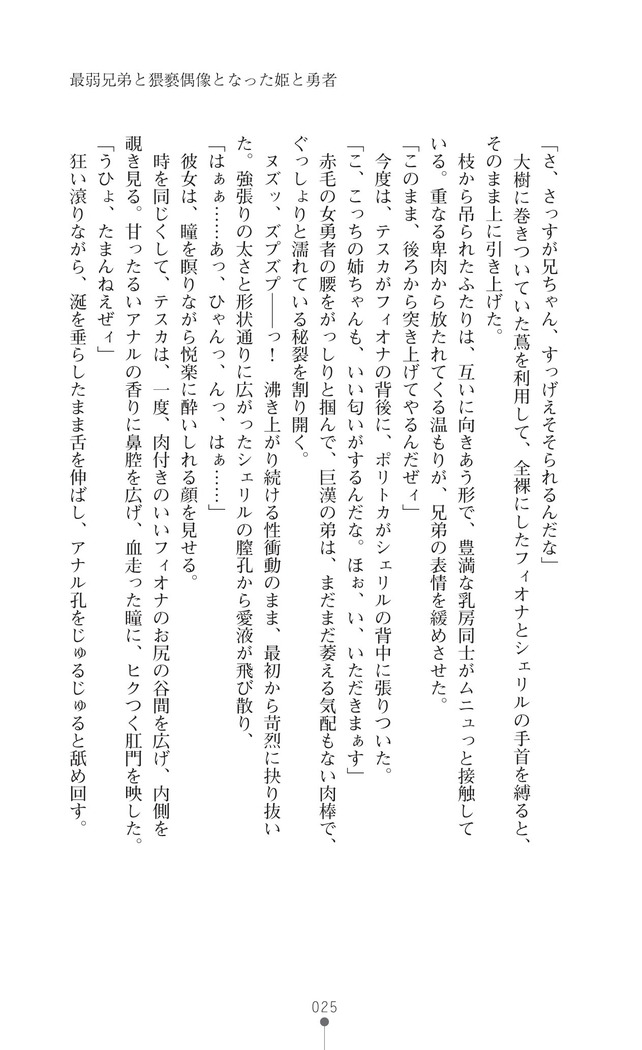 最弱兄弟と猥褻偶像となった姫と勇者
「さ、さっすが兄ちゃん、すっげえそそられるんだな」
大樹に巻きついていた蔦を利用して、全裸にしたフィオナとシェリルの手首を縛ると、
そのまま上に引き上げた。
枝から吊られたふたりは、互いに向きあう形で、豊満な乳房同士がムニュっと接触して
いる。重なる卑肉から放たれてくる温もりが、兄弟の表情を緩めさせた。
「このまま、後ろから突き上げてやるんだぜィ」
今度は、テスカがフィオナの背後に、ポリトカがシェリルの背中に張りついた。
「こ、こっちの姉ちゃんも、いい匂いがするんだな。ほぉ、い、いただきまぁす」
赤毛の女勇者の腰をがっしりと掴んで、巨漢の弟は、まだまだ萎える気配もない肉棒で、
ぐっしょりと濡れている秘裂を割り開く。
ヌズッ、ズプズプ――っ！　沸き上がり続ける性衝動のまま、最初から苛烈に抉り抜い
た。強張りの太さと形状通りに広がったシェリルの膣孔から愛液が飛び散り、
「はぁぁ……あっ、ひゃんっ、んっ、はぁ……」
彼女は、瞳を瞑りながら悦楽に酔いしれる顔を見せる。
時を同じくして、テスカは、一度、肉付きのいいフィオナのお尻の谷間を広げ、内側を
覗き見る。甘ったるいアナルの香りに鼻腔を広げ、血走った瞳に、ヒクつく肛門を映した。
「うひょ、たまんねえぜィ」
狂い滾りながら、涎を垂らしたまま舌を伸ばし、アナル孔をじゅるじゅると舐め回す。
025